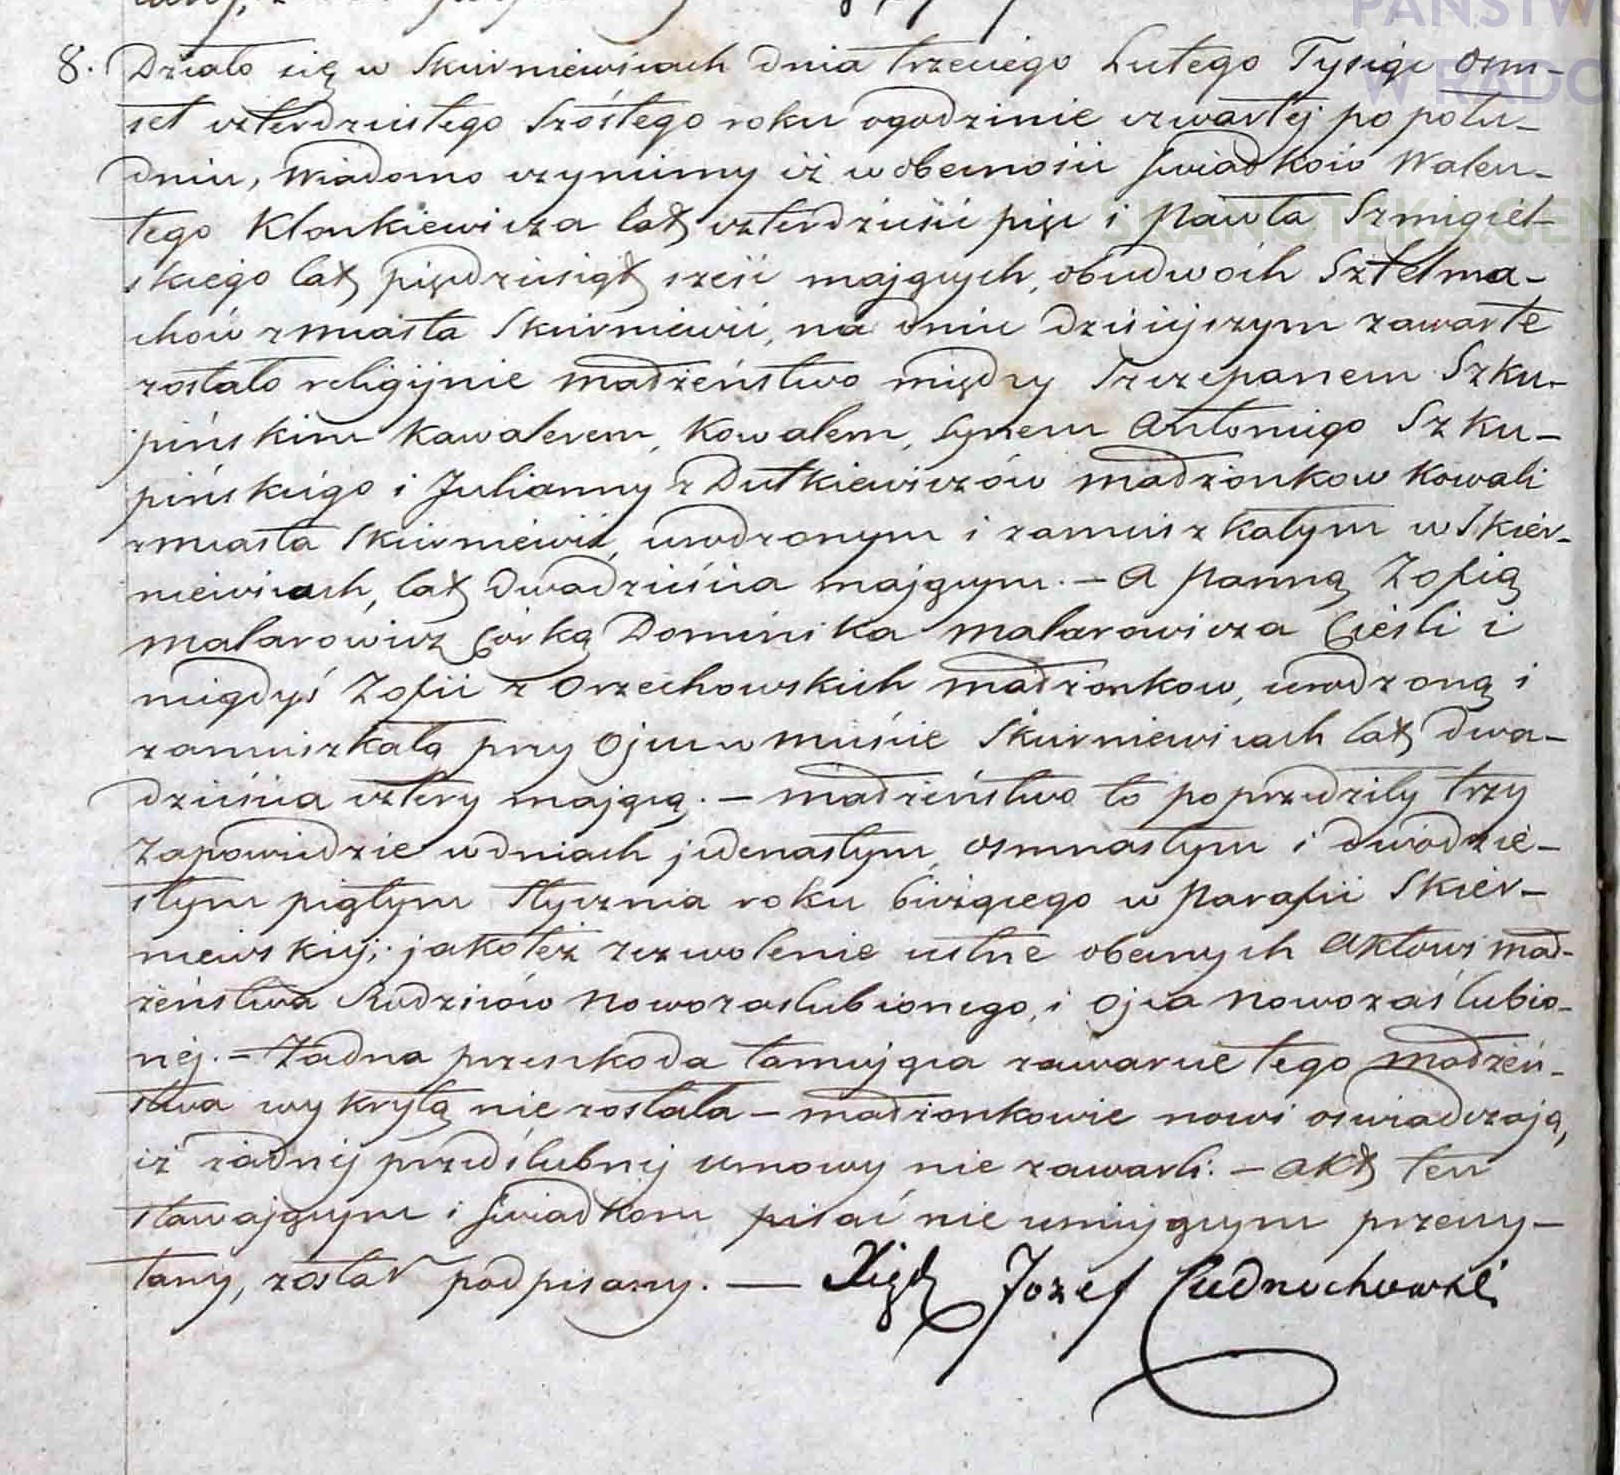 8. Działo się w Skierniewicach dnia trzeciego Lutego Tysiąc osm-
set czterdziestego Szóstego roku ogodzinie czwartej po połu-
dniu, Wiadomo czynimy iż w obecności świadków Walen-
tego Klonkiewicza lat czterdzieści pięc i Pawła Szmigiel-
skiego lat pięcdziesiąt sześc mających, obudwóch Sztelma-
chów z miasta Skierniewic, na dniu dzisiejszym zawarte
zostało religijnie małżeństwo między Szczepanem Szku-
pińskim Kawalerem, Kowalem, Synem Antoniego Szku-
pińskiego i Julianny z Dutkiewiczów małżonkow Kowali
z miasta Skierniewic, urodzonym i zamieszkałym w Skier-
niewicach, lat dwadzieścia mającym. — A Panną Zofią
Malarowicz Córką Dominika Malarowicza Cieśli i
niegdyś Zofii z Orzechowskich małżonkow, urodzoną i
zamieszkałą przy Ojcu w mieście Skierniewicach lat dwa-
dzieścia cztery mającą. — Małżeństwo to poprzedziły trzy
Zapowiedzie w dniach jedenastym, osmnastym i dwódzie-
stym piątym Stycznia roku bieżącego w Parafii Skier-
niewskiej; jakoteż zezwolenie ustne obecnych Aktowi mał-
żeństwa Rodziców Nowozaslubionego, i Ojca Nowozaślubio-
néj. — Żadna przeszkoda tamująca zawarcie tego małżeń-
stwa wykrytą nie została — małżonkowie nowi oswiadczają,
iż żadnej przedślubnej umowy nie zawarli. — Akt ten
stawającym i świadkom pisać nie umiejącym przeczy-
tany, został podpisany. — Xiądz Jozef Cudnochowski
PAŃSTW
W RADO
SKANOTEKA.GEN